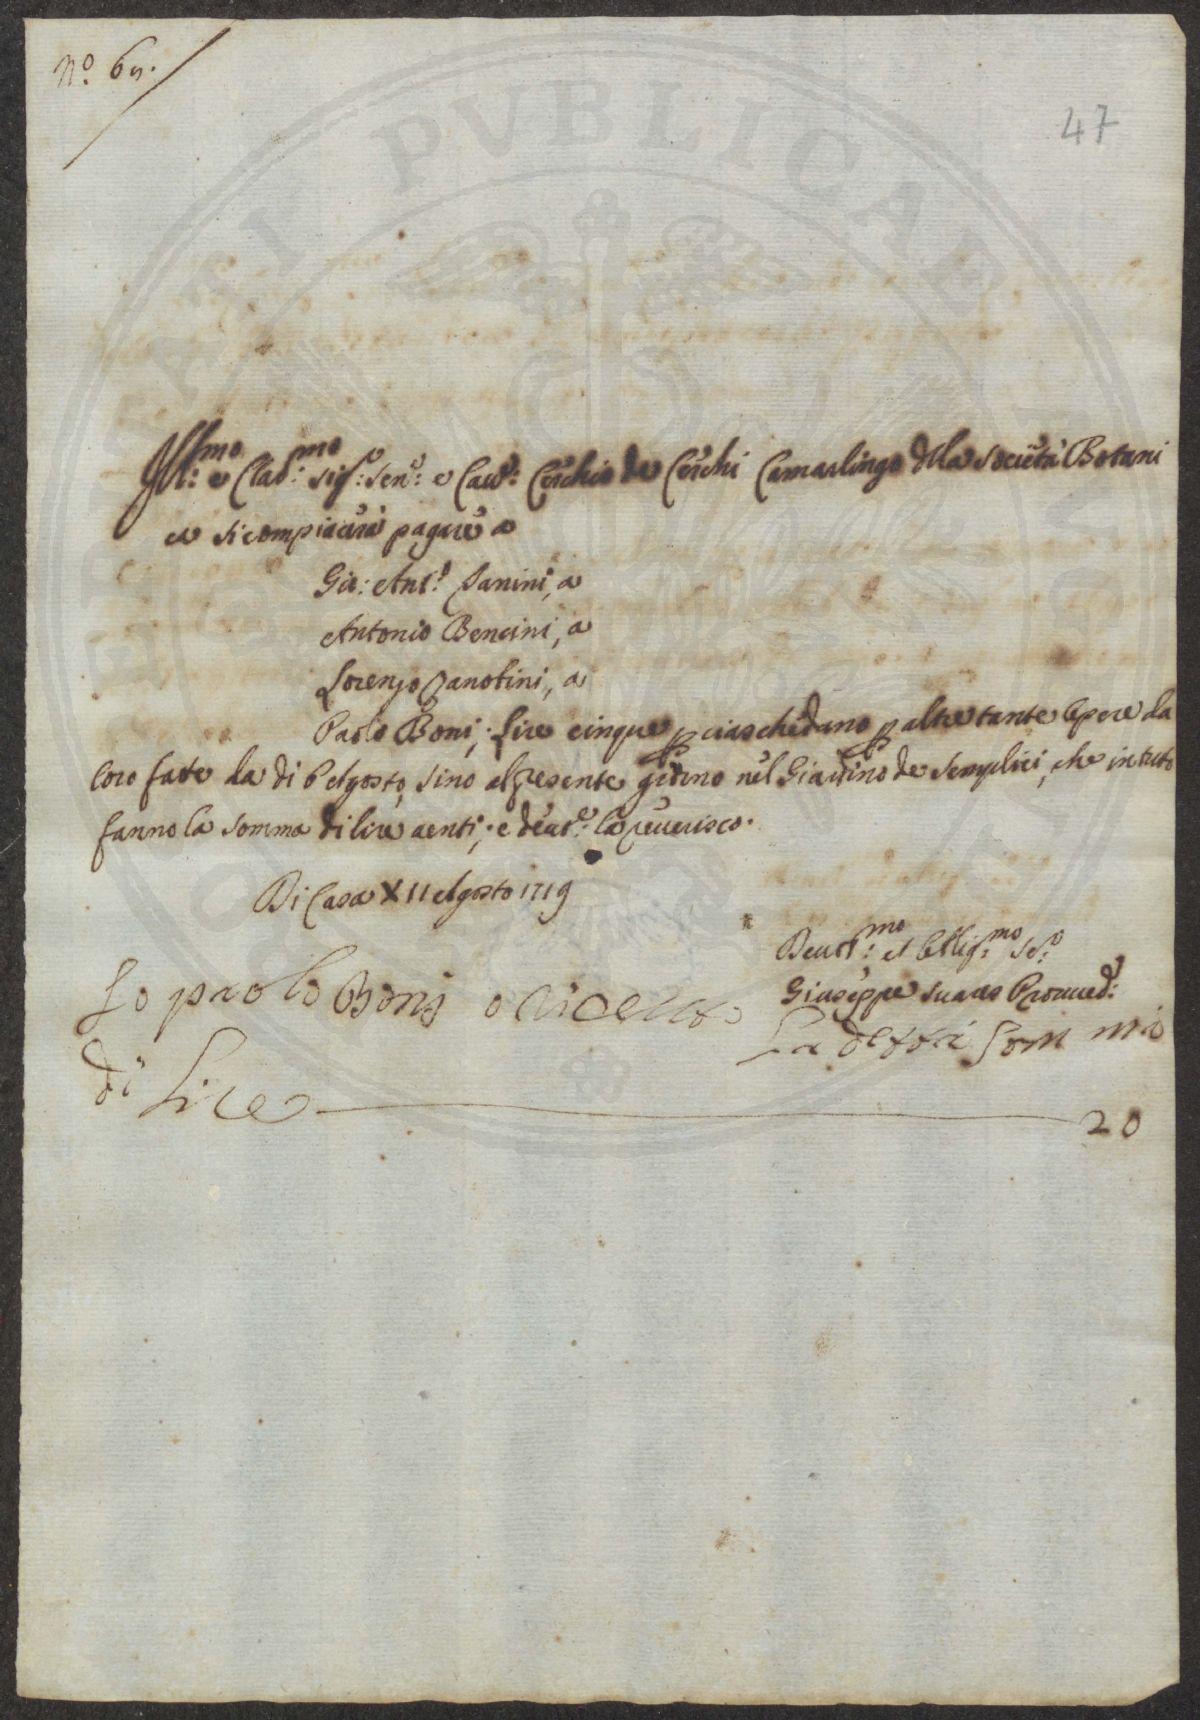 Nº. 65.
47
Ill:mo e Clar:mo Sig:e Sen:e e Cau:e Cerchio de Cerchi Camarlingo della Società Botani
ca si compiacerà pagare a
Gio: Ant:o Janini, a
Antonio Bencini, a
Lorenzo Zanobini, a
Paolo Boni; Lire cinque p ciaschedano p altre tante Opere da
loro fatte da di 6 Agosto, sino al presente giorno nel Giardino de Semplici, che in tutto
fanno la somma di lire uenti; e deuot:e la reuerisco.
Di Casa XII Agosto 1719
Deuot:mo et Obblig:mo Se:e
Giuseppe Suares Proued:e
Io paolo Bonj o riceuuto
La detta Somma
di Lire 20
PVBLICAE